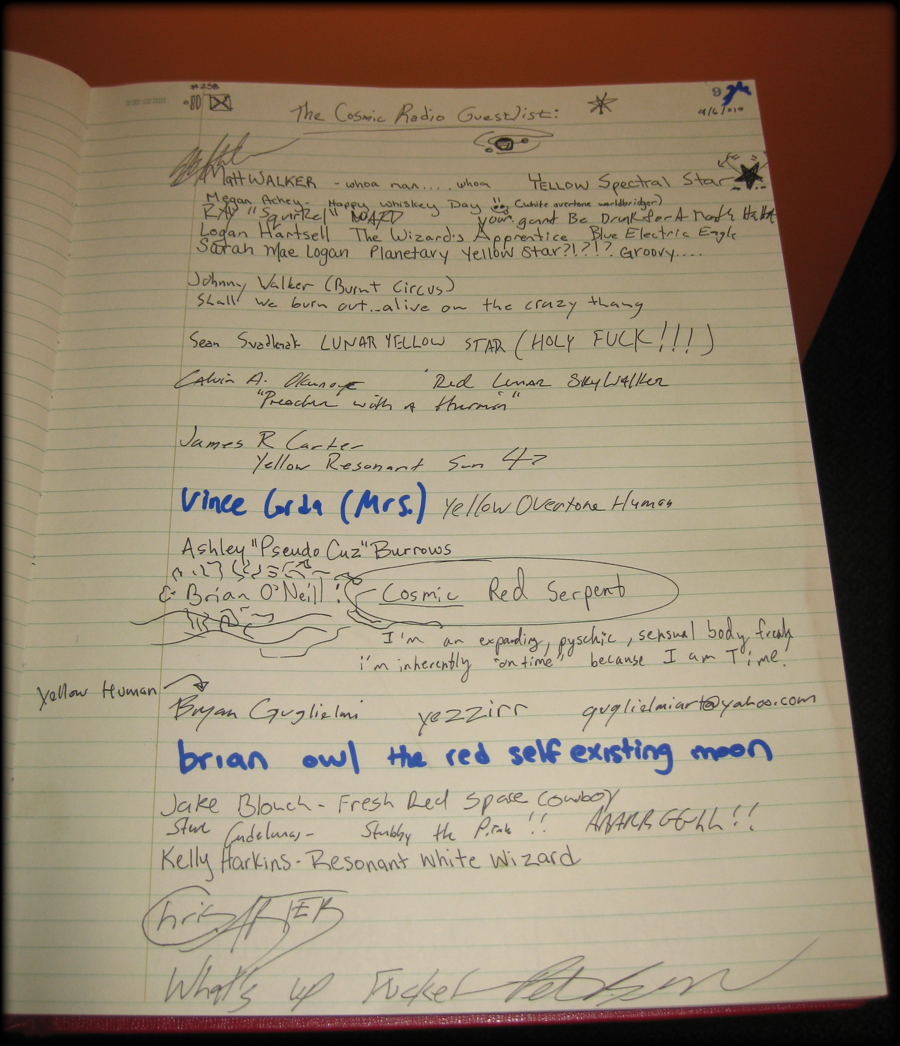 #258
9
4/6/010
The Cosmic Radio Guestlist:
Matt WALKER - whoa man.... whoa YELLOW Spectral Star
Megan Achey - Happy whiskey Day (white overtone worldbridger)
RAY "Squirrel" WARD your gonna Be Drunk for A month
Logan Hartsell The Wizard's Apprentice Blue Electric Eagle
Sarah Mae Logan Planetary Yellow Star?!?!? Groovy....
Johnny Walker (Burnt Circus)
Shall we burn out..alive on the crazy thang
Sean LUNAR YELLOW STAR (HOLY FUCK!!!)
Calvin A. Red Lunar SkyWalker
"Preacher with a
James R Carter
Yellow Resonant Sun 47
Vince Corda (Mrs.) Yellow Overtone Human
Ashley "Pseudo Cuz" Burrows
Brian O'Neill! Cosmic Red Serpent
I'm an expanding, pyschic, sensual body freak
i'm inherently "on time" because I am Time.
Yellow Human
Bryan Guglielmi yezzirr guglielmiart@yahoo.com
brian owl the red self existing moon
Jake Blouch - Fresh Red Space Cowboy
Steve Stubby the Pirate !! AAARRGGhh!!
Kelly Harkins - Resonant White Wizard
Chris
What's up Fucker